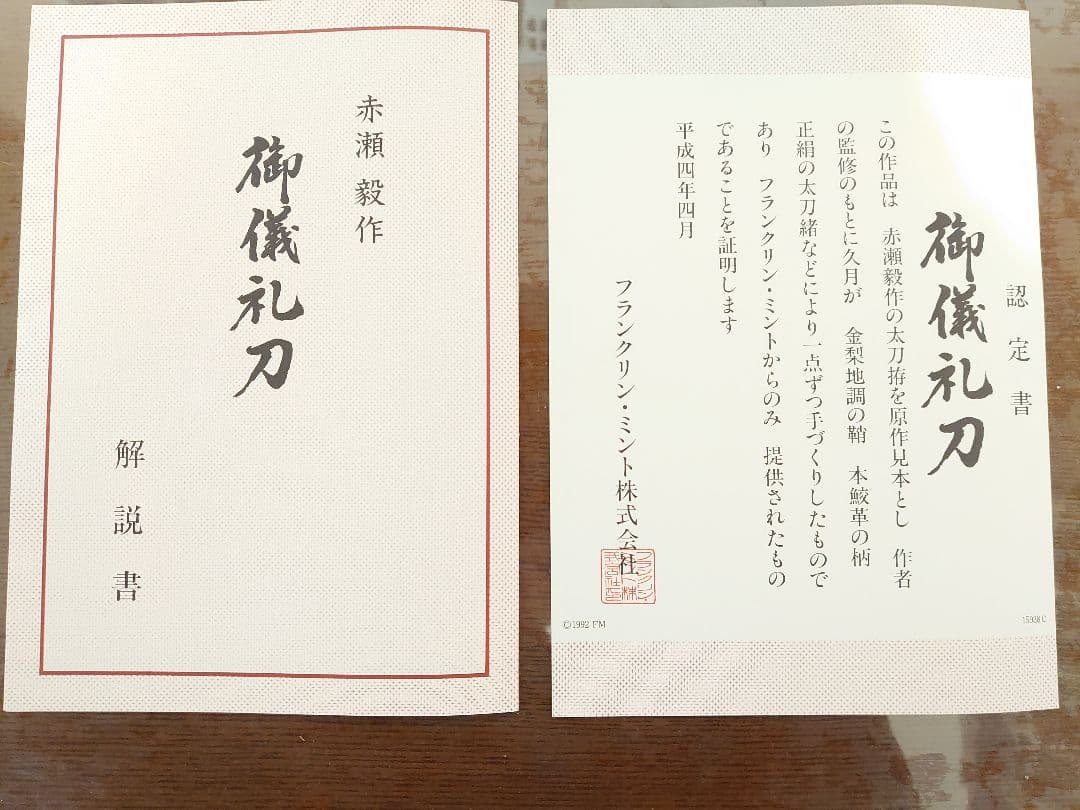 赤瀬毅作
御儀礼刀
解説書
認定書
御儀礼刀
この作品は 赤瀬毅作の太刀拵を原作見本とし 作者
の監修のもとに久月が 金梨地調の鞘 本鮫革の柄
正絹の太刀緒などにより一点ずつ手づくりしたもので
あり フランクリン・ミントからのみ 提供されたもの
であることを証明します
平成四年四月
フランクリン・ミント株式会社
©1992 FM